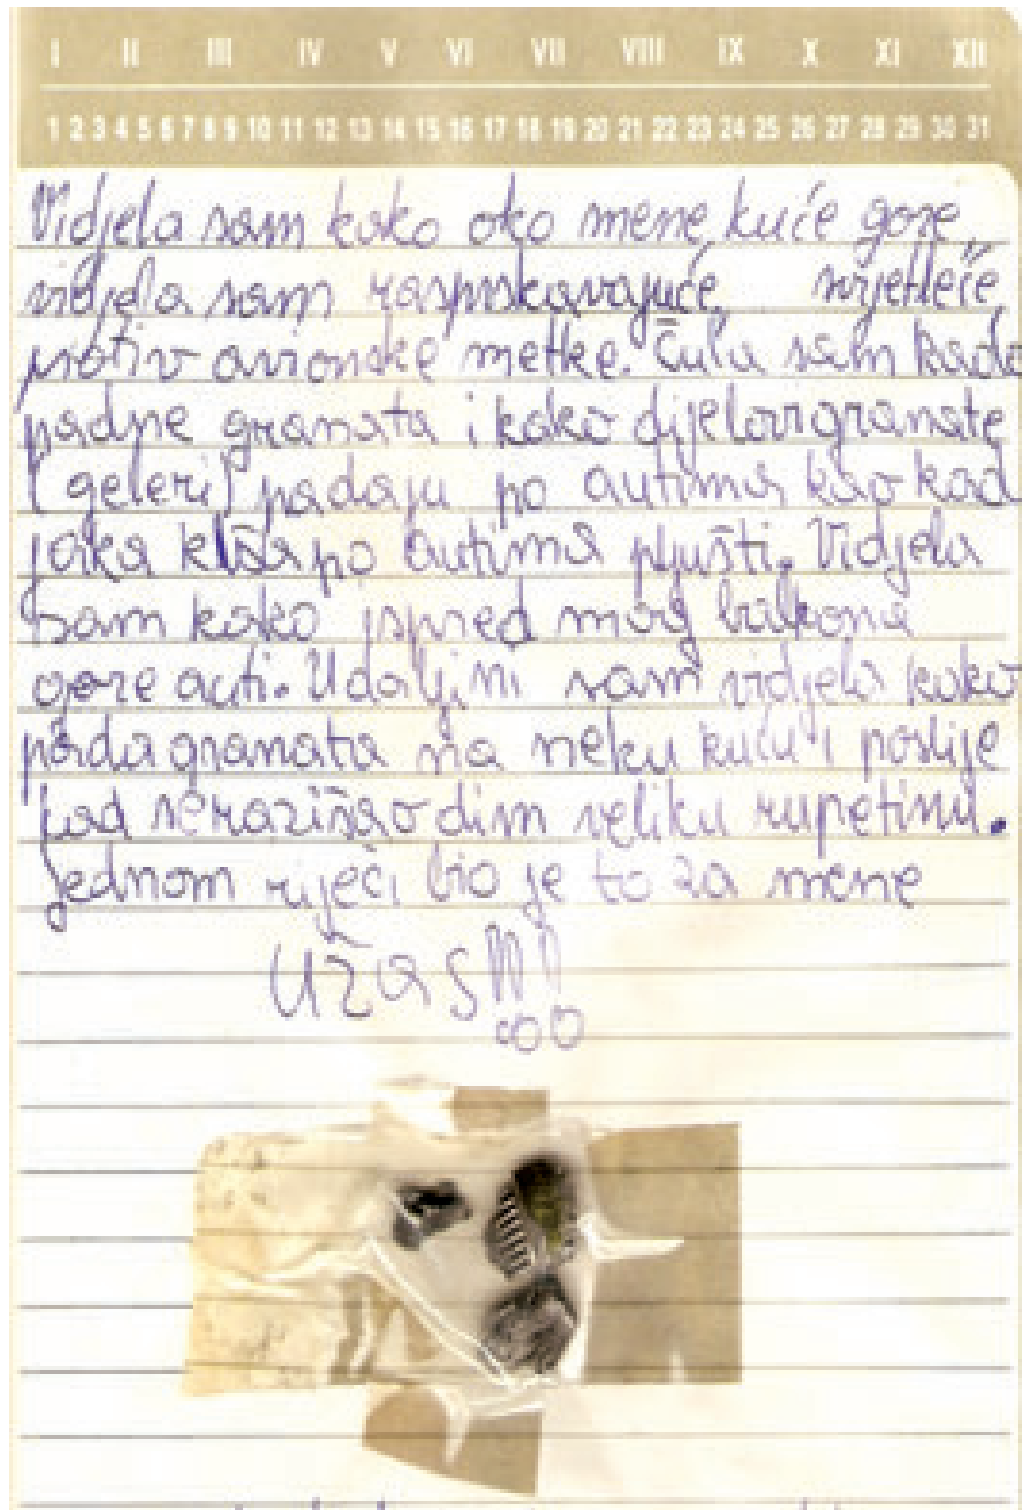 I II III IV V VI VII VIII IX X XI XII
1 2 3 4 5 6 7 8 9 10 11 12 13 14 15 16 17 18 19 20 21 22 23 24 25 26 27 28 29 30 31
Vidjela sam kako oko mene kuće gore,
vidjela sam raspskavajuće, svjetleće,
protiv avionske metke. Čula sam kada
padne granata i kako dijelovi granate
(geleri) padaju po autima kao kad
jaka kiša po autima pljušti. Vidjela
sam kako ispred mog balkona
gore auti. U daljini sam vidjela kako
pada granata na neku kuću i poslije
kad se razišao dim veliku rupetinu.
Jednom riječi bio je to za mene
UŽAS!!!